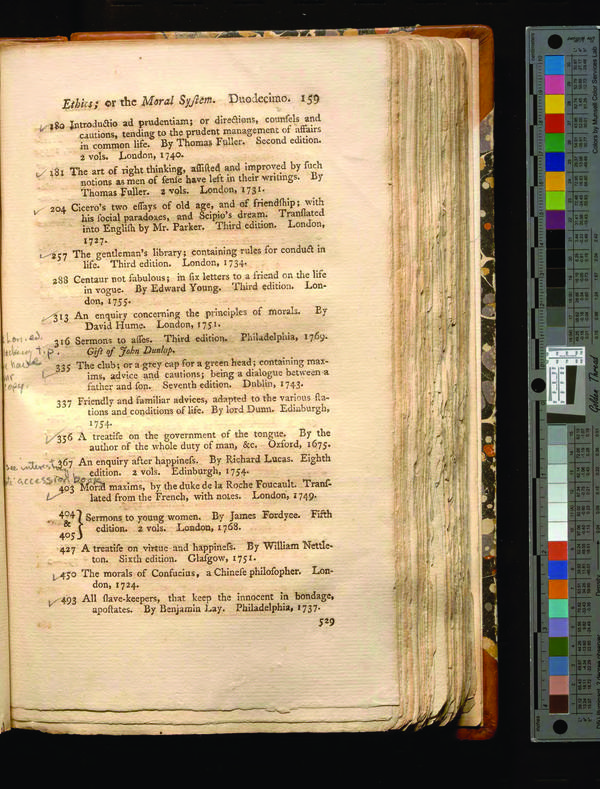 Ethics; or the Moral Syſtem. Duodecimo. 159
180 Introductio ad prudentiam; or directions, counſels and
cautions, tending to the prudent management of affairs
in common life. By Thomas Fuller. Second edition.
2 vols. London, 1740.
181 The art of right thinking, aſſiſted and improved by ſuch
notions as men of ſenſe have left in their writings. By
Thomas Fuller. 2 vols. London, 1731.
204 Cicero's two eſſays of old age, and of friendſhip; with
his ſocial paradoxes, and Scipio's dream. Tranſlated
into Engliſh by Mr. Parker. Third edition. London,
1727.
257 The gentleman's library; containing rules for conduct in
life. Third edition. London, 1734.
288 Centaur not fabulous; in ſix letters to a friend on the life
in vogue. By Edward Young. Third edition. Lon-
don, 1755.
313 An enquiry concerning the principles of morals. By
David Hume. London, 1751.
316 Sermons to aſſes. Third edition. Philadelphia, 1769.
Gift of John Dunlop.
335 The club; or a grey cap for a green head; containing max-
ims, advice and cautions; being a dialogue between a
father and ſon. Seventh edition. Dublin, 1743.
337 Friendly and familiar advices, adapted to the various ſta-
tions and conditions of life. By lord Dunn. Edinburgh,
1754.
356 A treatiſe on the government of the tongue. By the
author of the whole duty of man, &c. Oxford, 1675.
see interesting
367 An enquiry after happineſs. By Richard Lucas. Eighth
edition. 2 vols. Edinburgh, 1754.
accession book
403 Moral maxims, by the duke de la Roche Foucault. Tranſ-
lated from the French, with notes. London, 1749.
404
& Sermons to young women. By James Fordyce. Fifth
405 edition. 2 vols. London, 1768.
427 A treatiſe on virtue and happineſs. By William Nettle-
ton. Sixth edition. Glaſgow, 1751.
450 The morals of Confucius, a Chineſe philoſopher. Lon-
don, 1724.
493 All ſlave-keepers, that keep the innocent in bondage,
apoſtates. By Benjamin Lay. Philadelphia, 1737.
529
Golden Thread